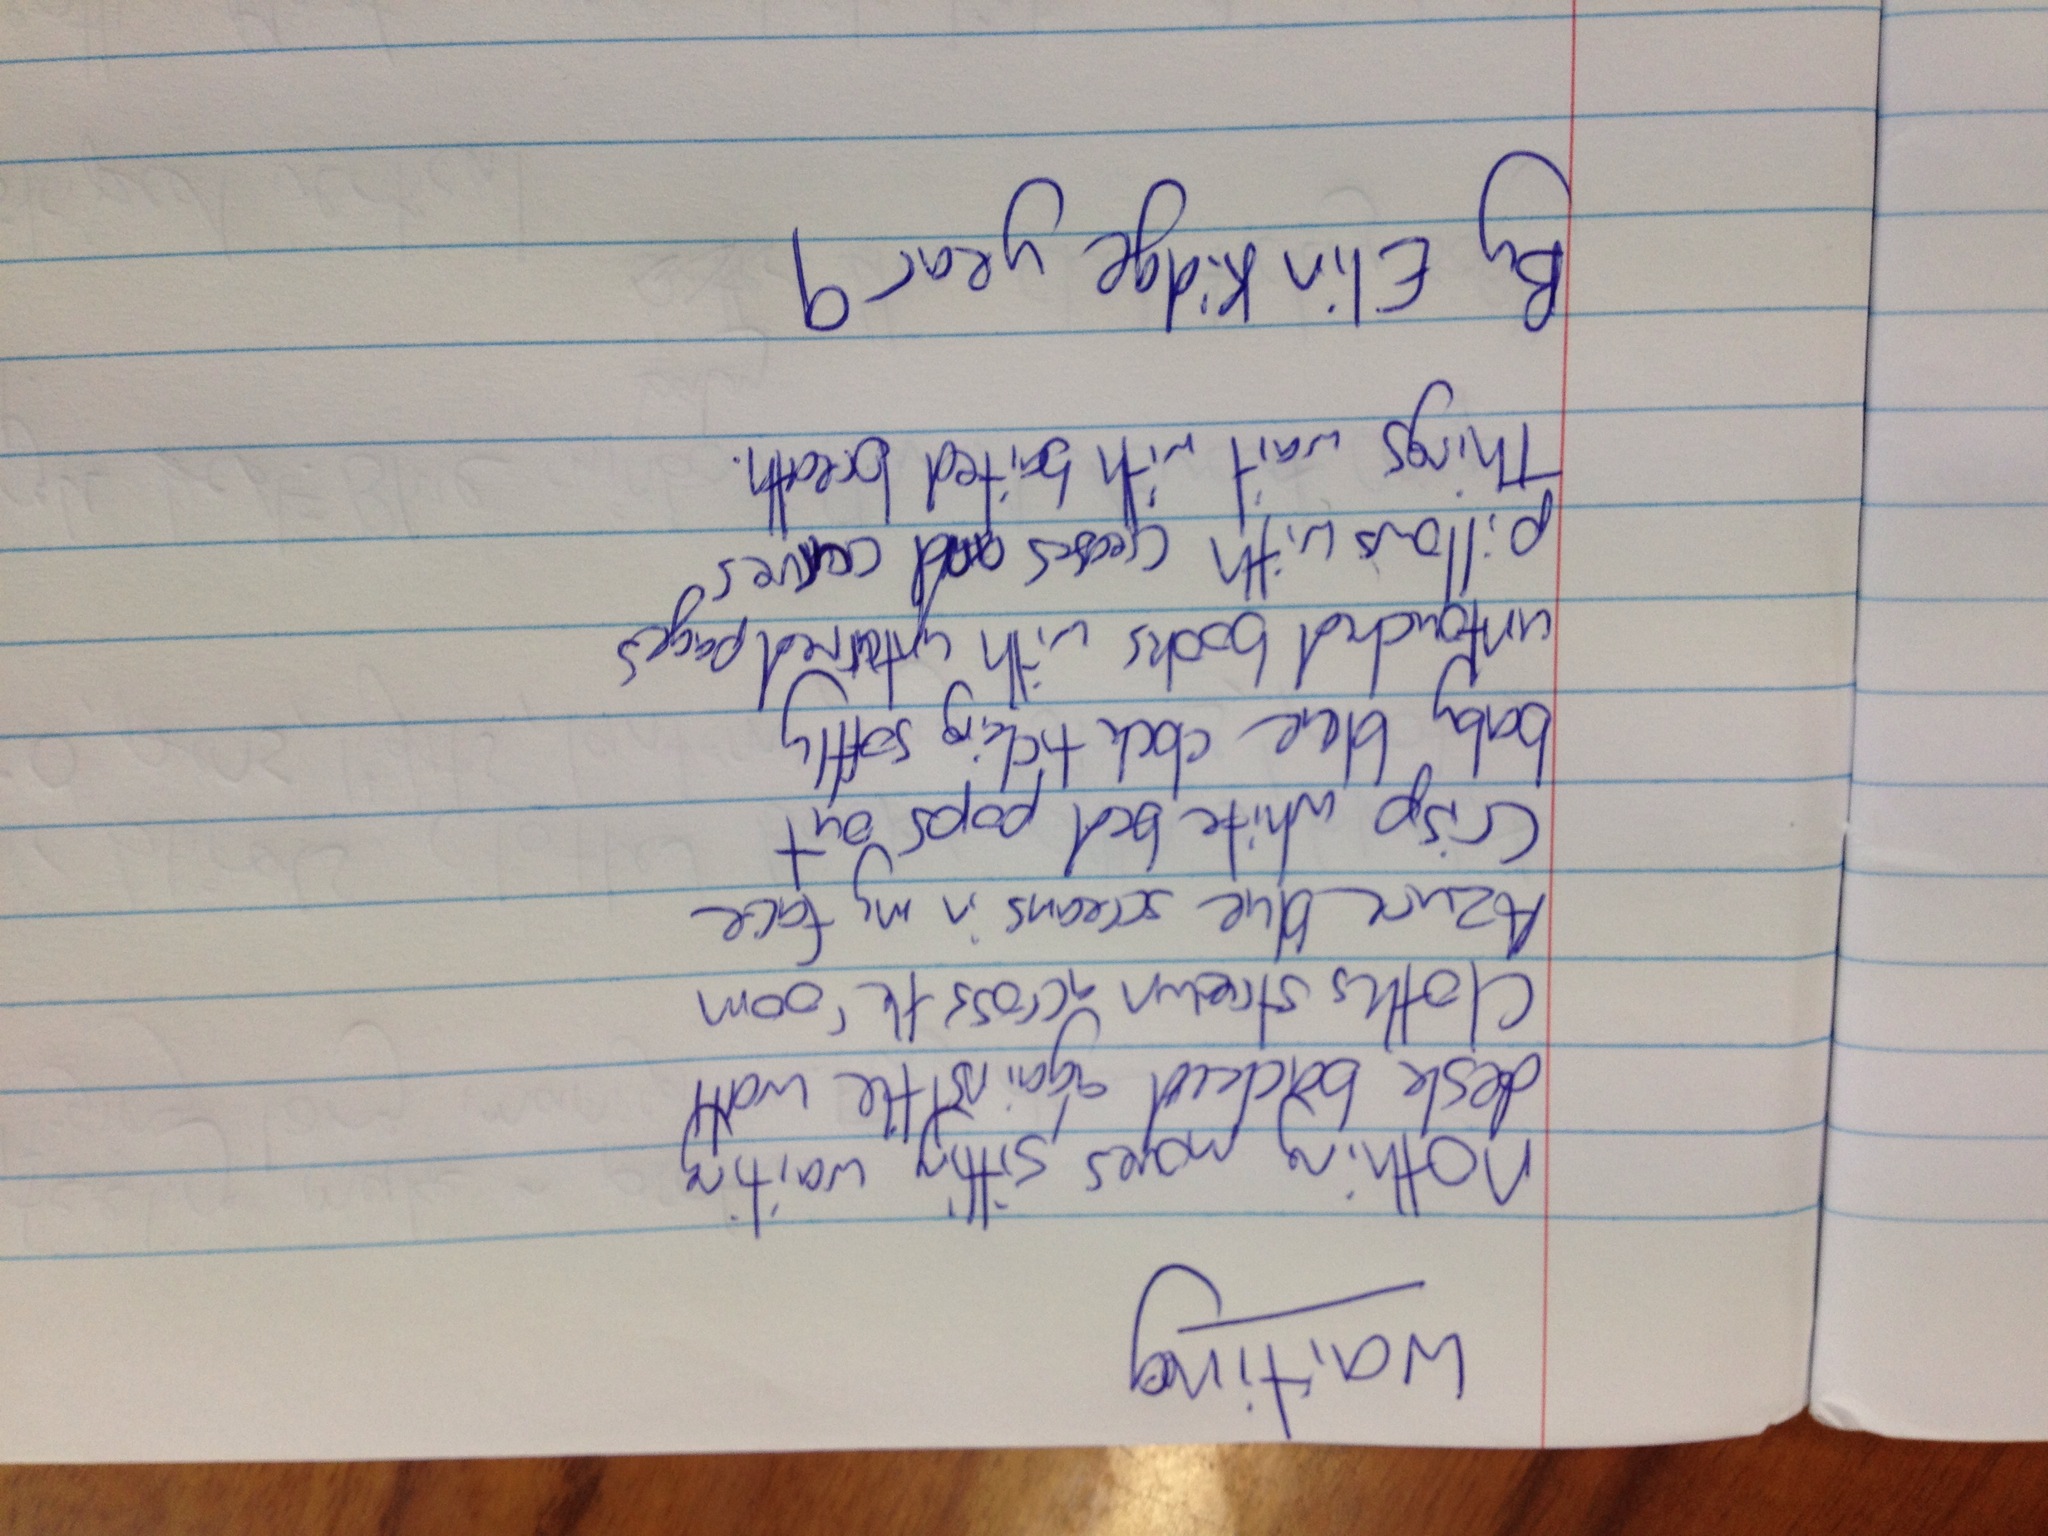 Waiting
Nothing moves sitting waiting
desk backed against the wall
Clothes strewn across the room
Azure blue screams in my face
Crisp white bed pops out
baby blue clock ticking softly
untouched books with unturned pages
pillows with creases and curves
Things wait with baited breath.
By Elin Kidge year 9